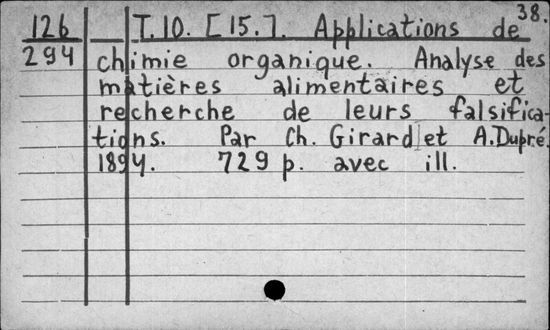 38.
126 T. 10. [15.]. Applications de
294 chimie organique. Analyse des
matières alimentaires et
recherche de leurs falsifica-
tions. Par Ch. Girard et A. Dupré.
1894. 729 p. avec ill.